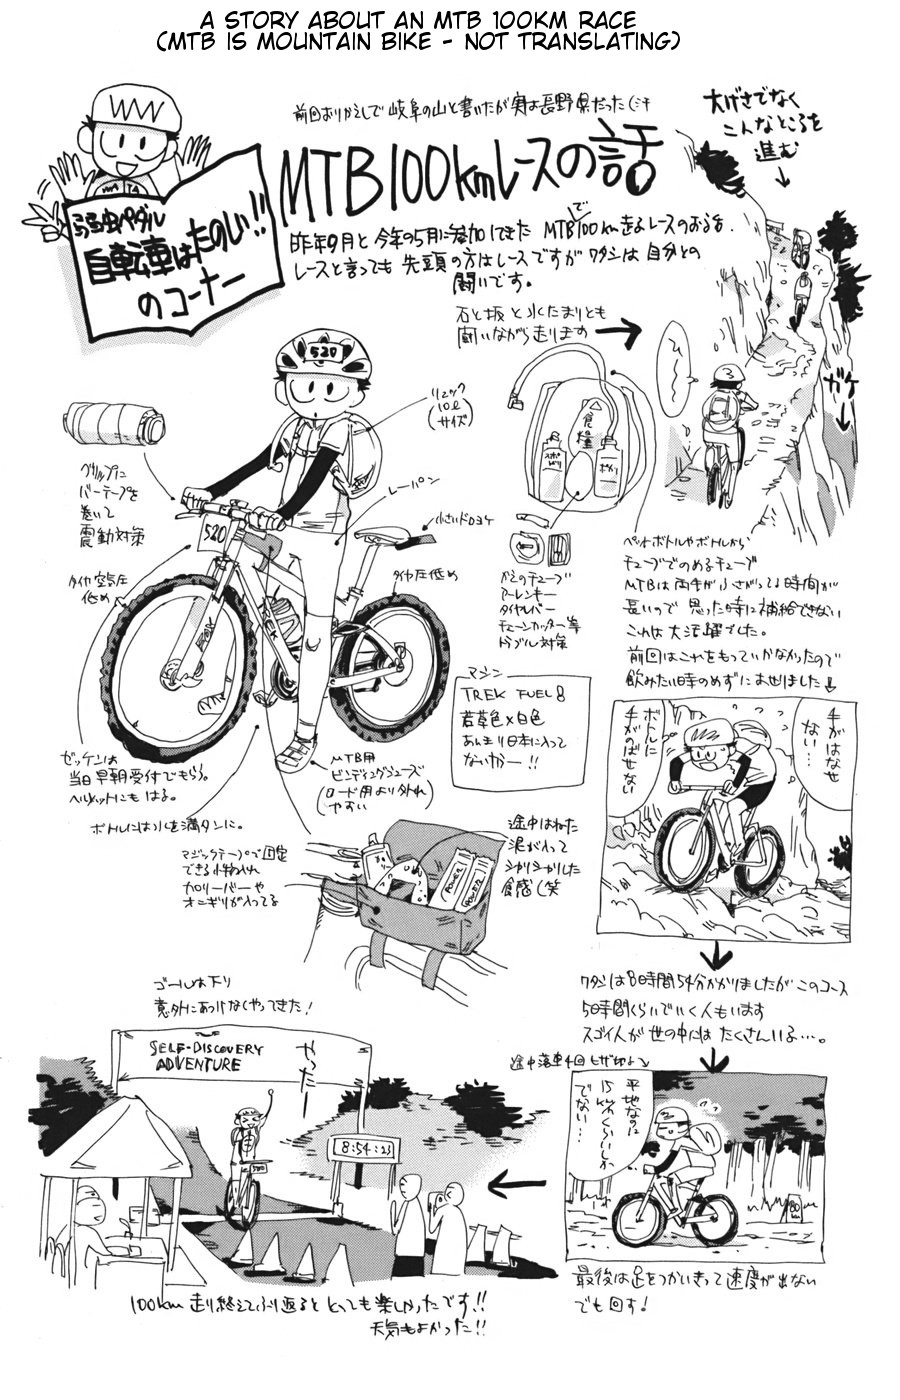 A STORY ABOUT AN MTB 100KM RACE
(MTB IS MOUNTAIN BIKE - NOT TRANSLATING)
前回おりかえしで岐阜の山と書いたが実は長野県だった
MTB100kmレースの話
弱虫ペダル
自転車はたのしい!!
のコーナー
昨年9月と今年の5月に参加してきた MTBで100km走るレースのおはなし。
レースと言っても 先頭の方はレースですがワタシは自分との
闘いです。
大げさでなく
こんなところを
進む
石と坂と水たまりとも
闘いながら走ります
ガケ
ひ〜
520
リュック
10ℓ
(サイズ)
食糧
スポドリ
グリップに
バーテープを
巻いて
震動対策
レーパン
小さいドロヨケ
520
タイヤ空気圧
低め
タイヤ圧低め
TREK
かえのチューブ
アーレンキー
タイヤレバー
チェーンカッター等
トラブル対策
ペットボトルやボトルから
チューブでのめるチューブ
MTBは両手がふさがってる時間が
長いので 思った時に補給できない
これは大活躍でした。
前回はこれをもっていかなかったので
飲みたい時のめずにあせりました
マシン
TREK FUEL 8
若草色×白色
あんまり日本に入って
ないカナー!!
ゼッケンは
当日早朝受付でもらう。
ヘルメットにもはる。
MTB用
ビンディングシューズ
(ロード用より外れ
やすい)
ボトルには水を満タンに。
手がはなせ
ない…
ボトルに
手がのばせない
マジックテープで固定
できる小物入れ
カロリーバーや
オニギリが入ってる
POWER
途中はねた
泥が入って
シャリシャリした
食感(笑
ワタシは8時間54分かかりましたが このコース
5時間くらいでいく人もいます
スゴイ人が世の中には たくさんいる…。
ゴールは下り
意外にあっけなくやってきた!
SELF-DISCOVERY
ADVENTURE
やったー
8:54:23
520
途中落車4回 ヒザ
平地なのに
15km/hくらいしか
でない…
80
最後は足をつかいきって速度が出ない
でも回す!
100km 走り終えてふり返ると とっても楽しかったです!!
天気もよかった!!